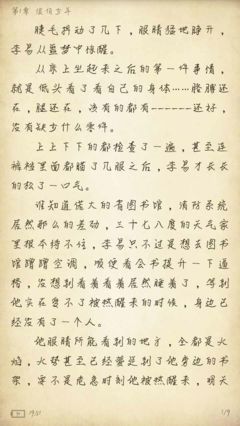 第1章 倾倾少年
睫毛抖动了几下，眼睛猛地睁开，
李易从噩梦中惊醒。
从床上坐起来之后的第一件事情，
就是低头看了看自己的身体……胳膊还
在，腿还在，该有的都有------还好，
没有缺少什么零件。
上上下下的都检查了一遍，甚至连
裤裆里面都瞄了几眼之后，李易才长长
的松了一口气。
谁知道偌大的省图书馆，消防系统
居然那么的差劲，三十七八度的天气家
里根本待不住，李易只不过是想去图书
馆蹭蹭空调，顺便看会书提升一下逼
格，没想到看着看着居然睡着了，等到
他实在受不了被热醒来的时候，身边已
经没有了一个人。
他眼睛所能看到的地方，全都是火
焰，火势甚至已经蔓延到了他身边的书
架，实不是危急时刻他被热醒来，明天
19:51
1/9